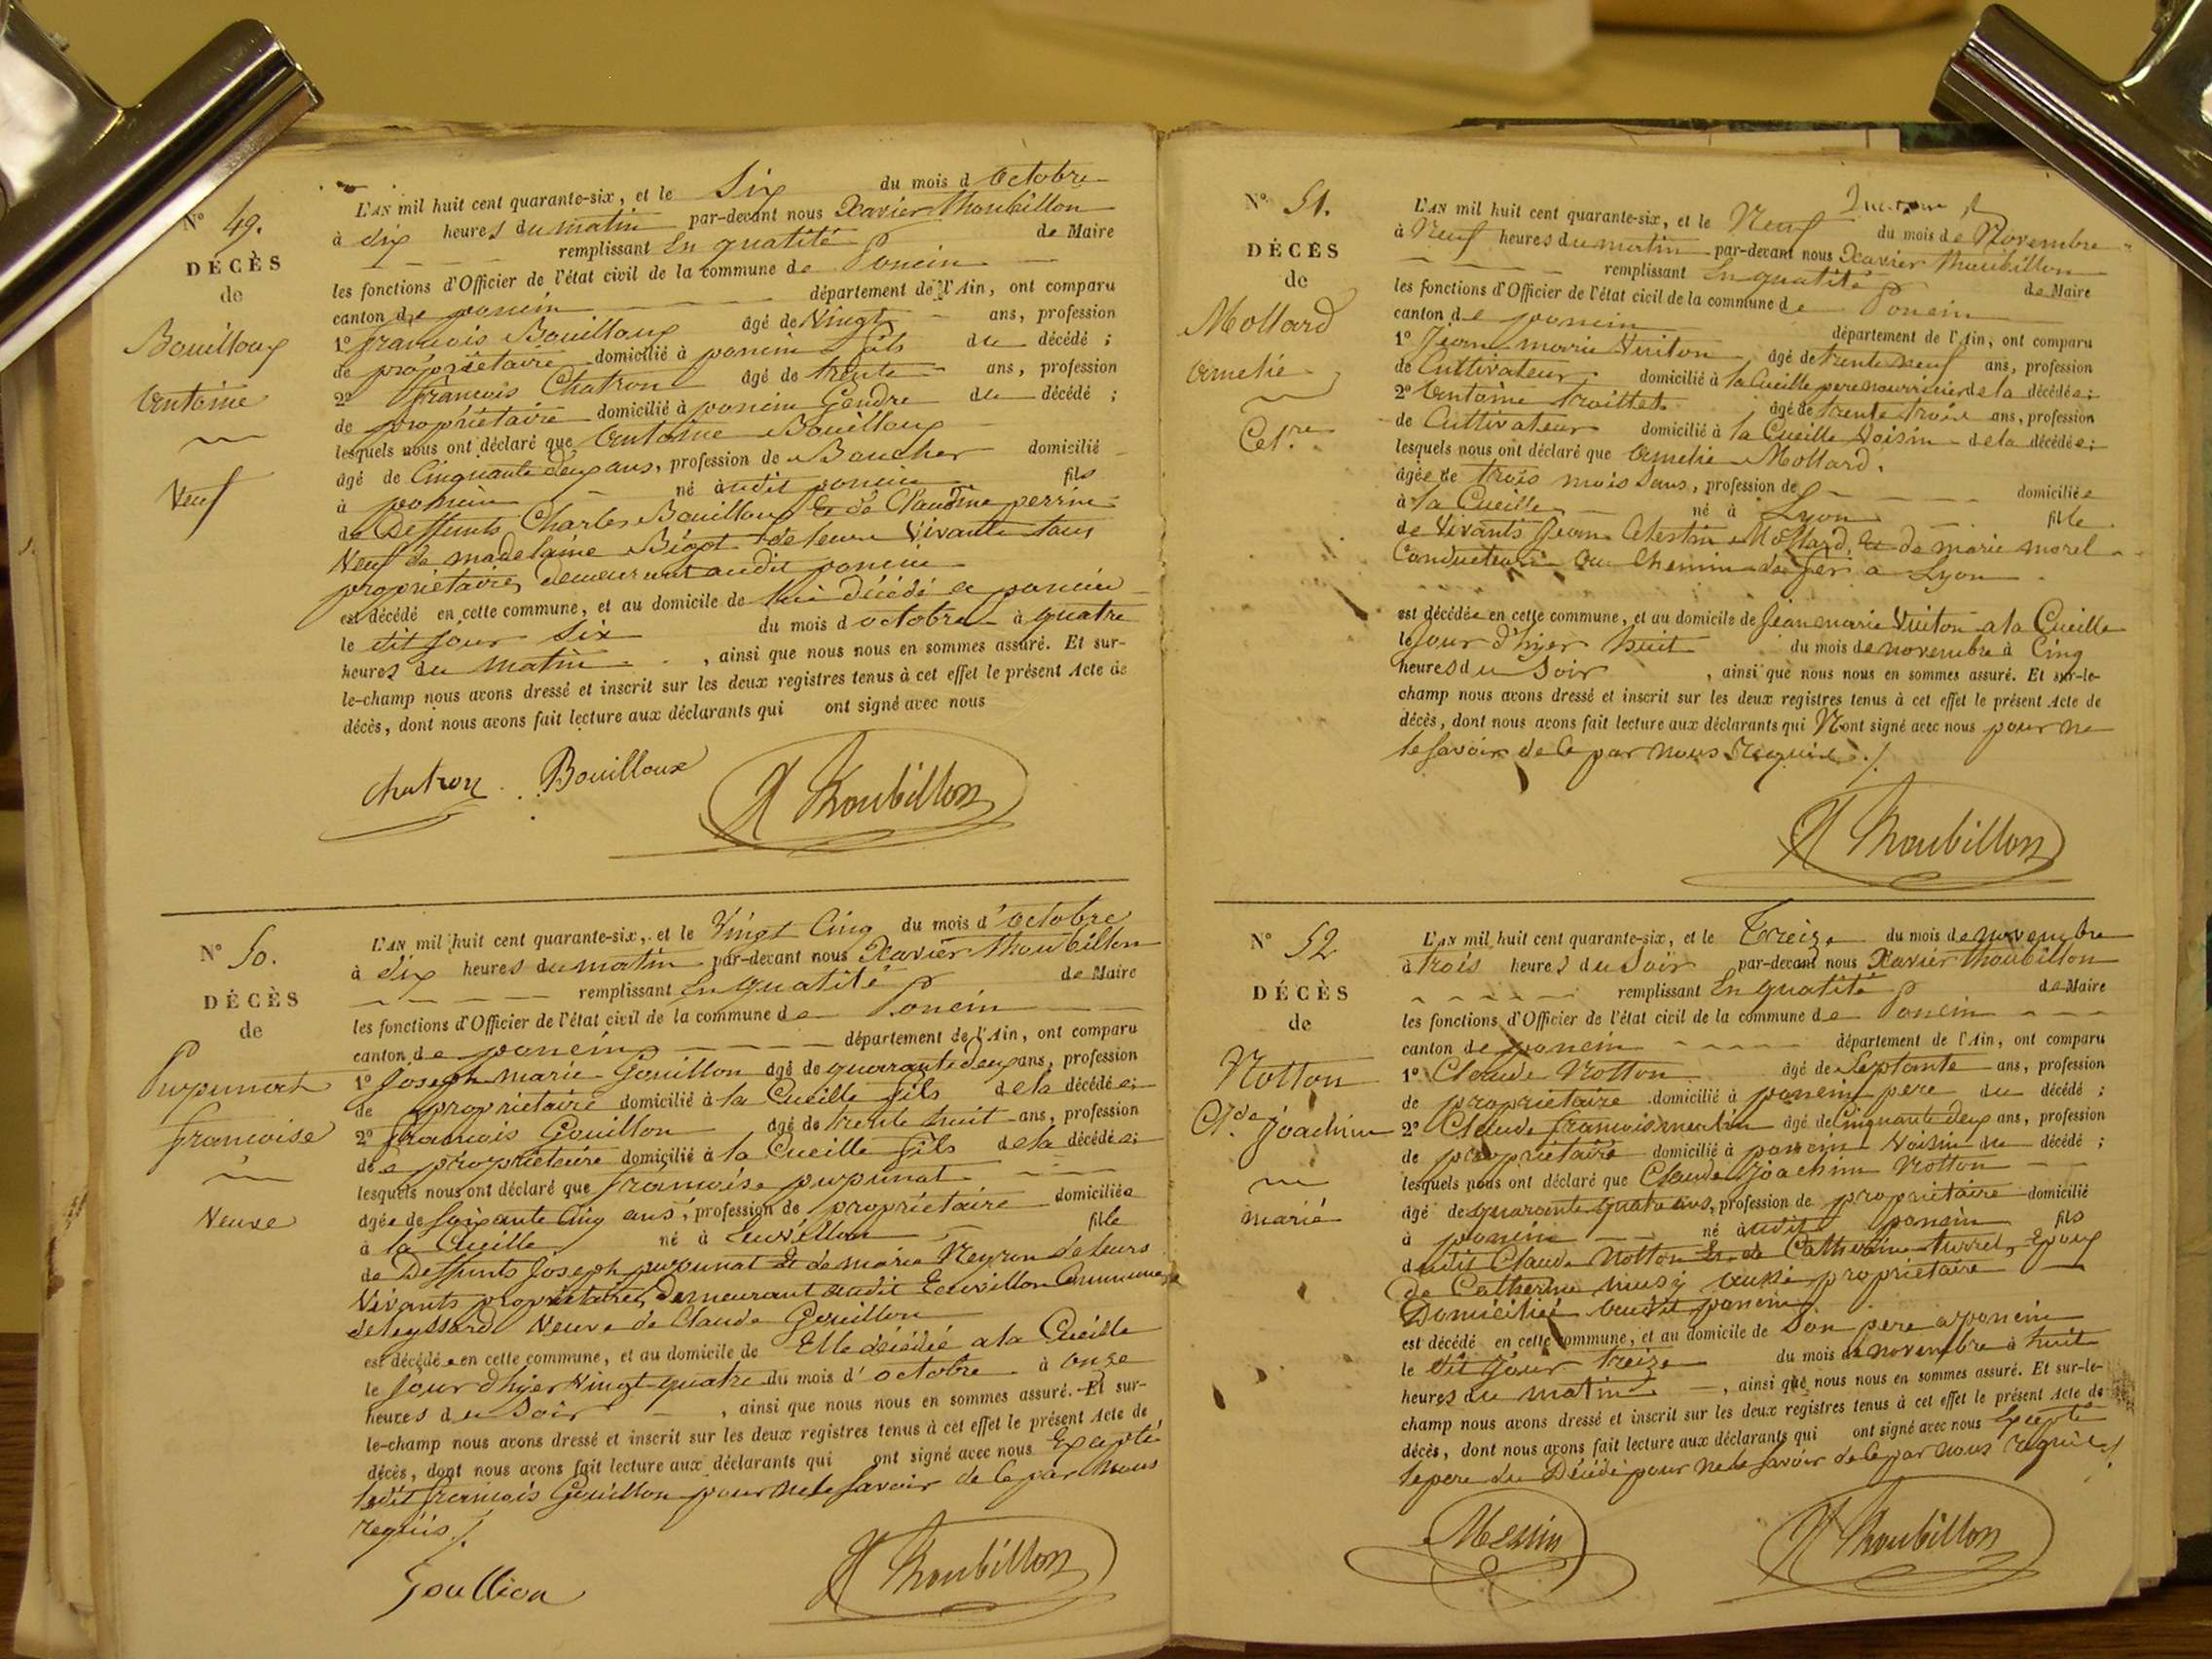 N° 49.
DÉCÈS
de
Bouilloux
Antoine
Veuf
L'AN mil huit cent quarante-six, et le Six du mois d'octobre
à dix heures du matin par-devant nous Xavier Thoubillon
remplissant En qualité de Maire
les fonctions d'Officier de l'état civil de la commune de Poncin
canton de poncin département de l'Ain, ont comparu
1° françois Bouilloux âgé de Vingt ans, profession
de propriétaire domicilié à poncin fils du décédé ;
2° françois Chatron âgé de trente ans, profession
de propriétaire domicilié à poncin Gendre du décédé ;
lesquels nous ont déclaré que Antoine Bouilloux
âgé de Cinquante deux ans, profession de Boucher domicilié
à poncin né audit poncin fils
de Deffunts Charles Bouilloux Et de Claudine perrin
Veuf de madelaine Bigot de leurs Vivants tous
propriétaires demeurant audit poncin
est décédé en cette commune, et au domicile de lui décédé a poncin
le dit jour Six du mois d octobre à quatre
heures du matin, ainsi que nous nous en sommes assuré. Et sur-
le-champ nous avons dressé et inscrit sur les deux registres tenus à cet effet le présent Acte de
décès, dont nous avons fait lecture aux déclarants qui ont signé avec nous
Chatron Bouilloux X Thoubillon
N° 50.
DÉCÈS
de
purpunat
françoise
Veuve
L'AN mil huit cent quarante-six, et le Vingt Cinq du mois d'octobre
à dix heures du matin par-devant nous Xavier Thoubillon
remplissant En qualité de Maire
les fonctions d'Officier de l'état civil de la commune de Poncin
canton de poncin département de l'Ain, ont comparu
1° Joseph marie Gouillon âgé de quarante deux ans, profession
de propriétaire domicilié à la Cueille fils de la décédée;
2° françois Gouillon âgé de trente huit ans, profession
de propriétaire domicilié à la Cueille fils de la décédée;
lesquels nous ont déclaré que françoise purpunat
âgée de Soixante Cinq ans, profession de propriétaire domiciliée
à la Cueille né à Leuvillon fille
de Deffunts Joseph purpunat Et de marie Neyron de leurs
Vivants propriétaires demeurant audit Commune
de Leyssard Veuve de Claude Gouillon
est décédée en cette commune, et au domicile de Elle décédée a la Cueille
le Jour d'hyer Vingt quatre du mois d'octobre à onze
heures du Soir, ainsi que nous nous en sommes assuré. Et sur-
le-champ nous avons dressé et inscrit sur les deux registres tenus à cet effet le présent Acte de
décès, dont nous avons fait lecture aux déclarants qui ont signé avec nous Excepté
ledit françois Gouillon pour ne le Savoir de Ce par Nous
requis ./.
Goullion X Thoubillon
N° 51.
DÉCÈS
de
Mollard
Amelie
Cel.re
L'AN mil huit cent quarante-six, et le Neuf du mois de Novembre
à Neuf heures du matin par-devant nous Xavier Thoubillon
remplissant En qualité de Maire
les fonctions d'Officier de l'état civil de la commune de Poncin
canton de poncin département de l'Ain, ont comparu
1° Jean marie Vuiton âgé de trente neuf ans, profession
de Cultivateur domicilié à la Cueille pere nourricier de la décédée;
2° Antoine troillet âgé de trente trois ans, profession
de Cultivateur domicilié à la Cueille Voisin de la décédée;
lesquels nous ont déclaré que Amelie Mollard,
âgée de trois mois ans, profession de domiciliée
à la Cueille né à Lyon fille
de Vivants Jean Celestin Mollard, Et de marie morel
Conducteur au Chemin de fer a Lyon
est décédée en cette commune, et au domicile de Jean marie Vuiton a la Cueille
le Jour d'hyer huit du mois de novembre à Cinq
heures du Soir, ainsi que nous nous en sommes assuré. Et sur-le-
champ nous avons dressé et inscrit sur les deux registres tenus à cet effet le présent Acte de
décès, dont nous avons fait lecture aux déclarants qui N'ont signé avec nous pour ne
le Savoir de Ce par Nous Requis ./.
X Thoubillon
N° 52
DÉCÈS
de
Notton
Cl.de Joachim
marié
L'AN mil huit cent quarante-six, et le Treize du mois de novembre
à trois heures du Soir par-devant nous Xavier Thoubillon
remplissant En qualité de Maire
les fonctions d'Officier de l'état civil de la commune de Poncin
canton de poncin département de l'Ain, ont comparu
1° Claude Notton âgé de Septante ans, profession
de propriétaire domicilié à poncin pere du décédé ;
2° Claude françois âgé de Cinquante deux ans, profession
de propriétaire domicilié à poncin Voisin du décédé ;
lesquels nous ont déclaré que Claude Joachim Notton
âgé de quarante quatre ans, profession de propriétaire domicilié
à poncin né audit poncin fils
dudit Claude Notton Et de Catherine turrel, Epoux
de Catherine musy aussi propriétaire
Domiciliée audit poncin
est décédé en cette commune, et au domicile de Son pere a poncin
le dit jour treize du mois de novembre à huit
heures du matin, ainsi que nous nous en sommes assuré. Et sur-le-
champ nous avons dressé et inscrit sur les deux registres tenus à cet effet le présent Acte de
décès, dont nous avons fait lecture aux déclarants qui ont signé avec nous Excepté
le pere du Décédé pour ne le Savoir de Ce par Nous requis ./.
Messin X Thoubillon